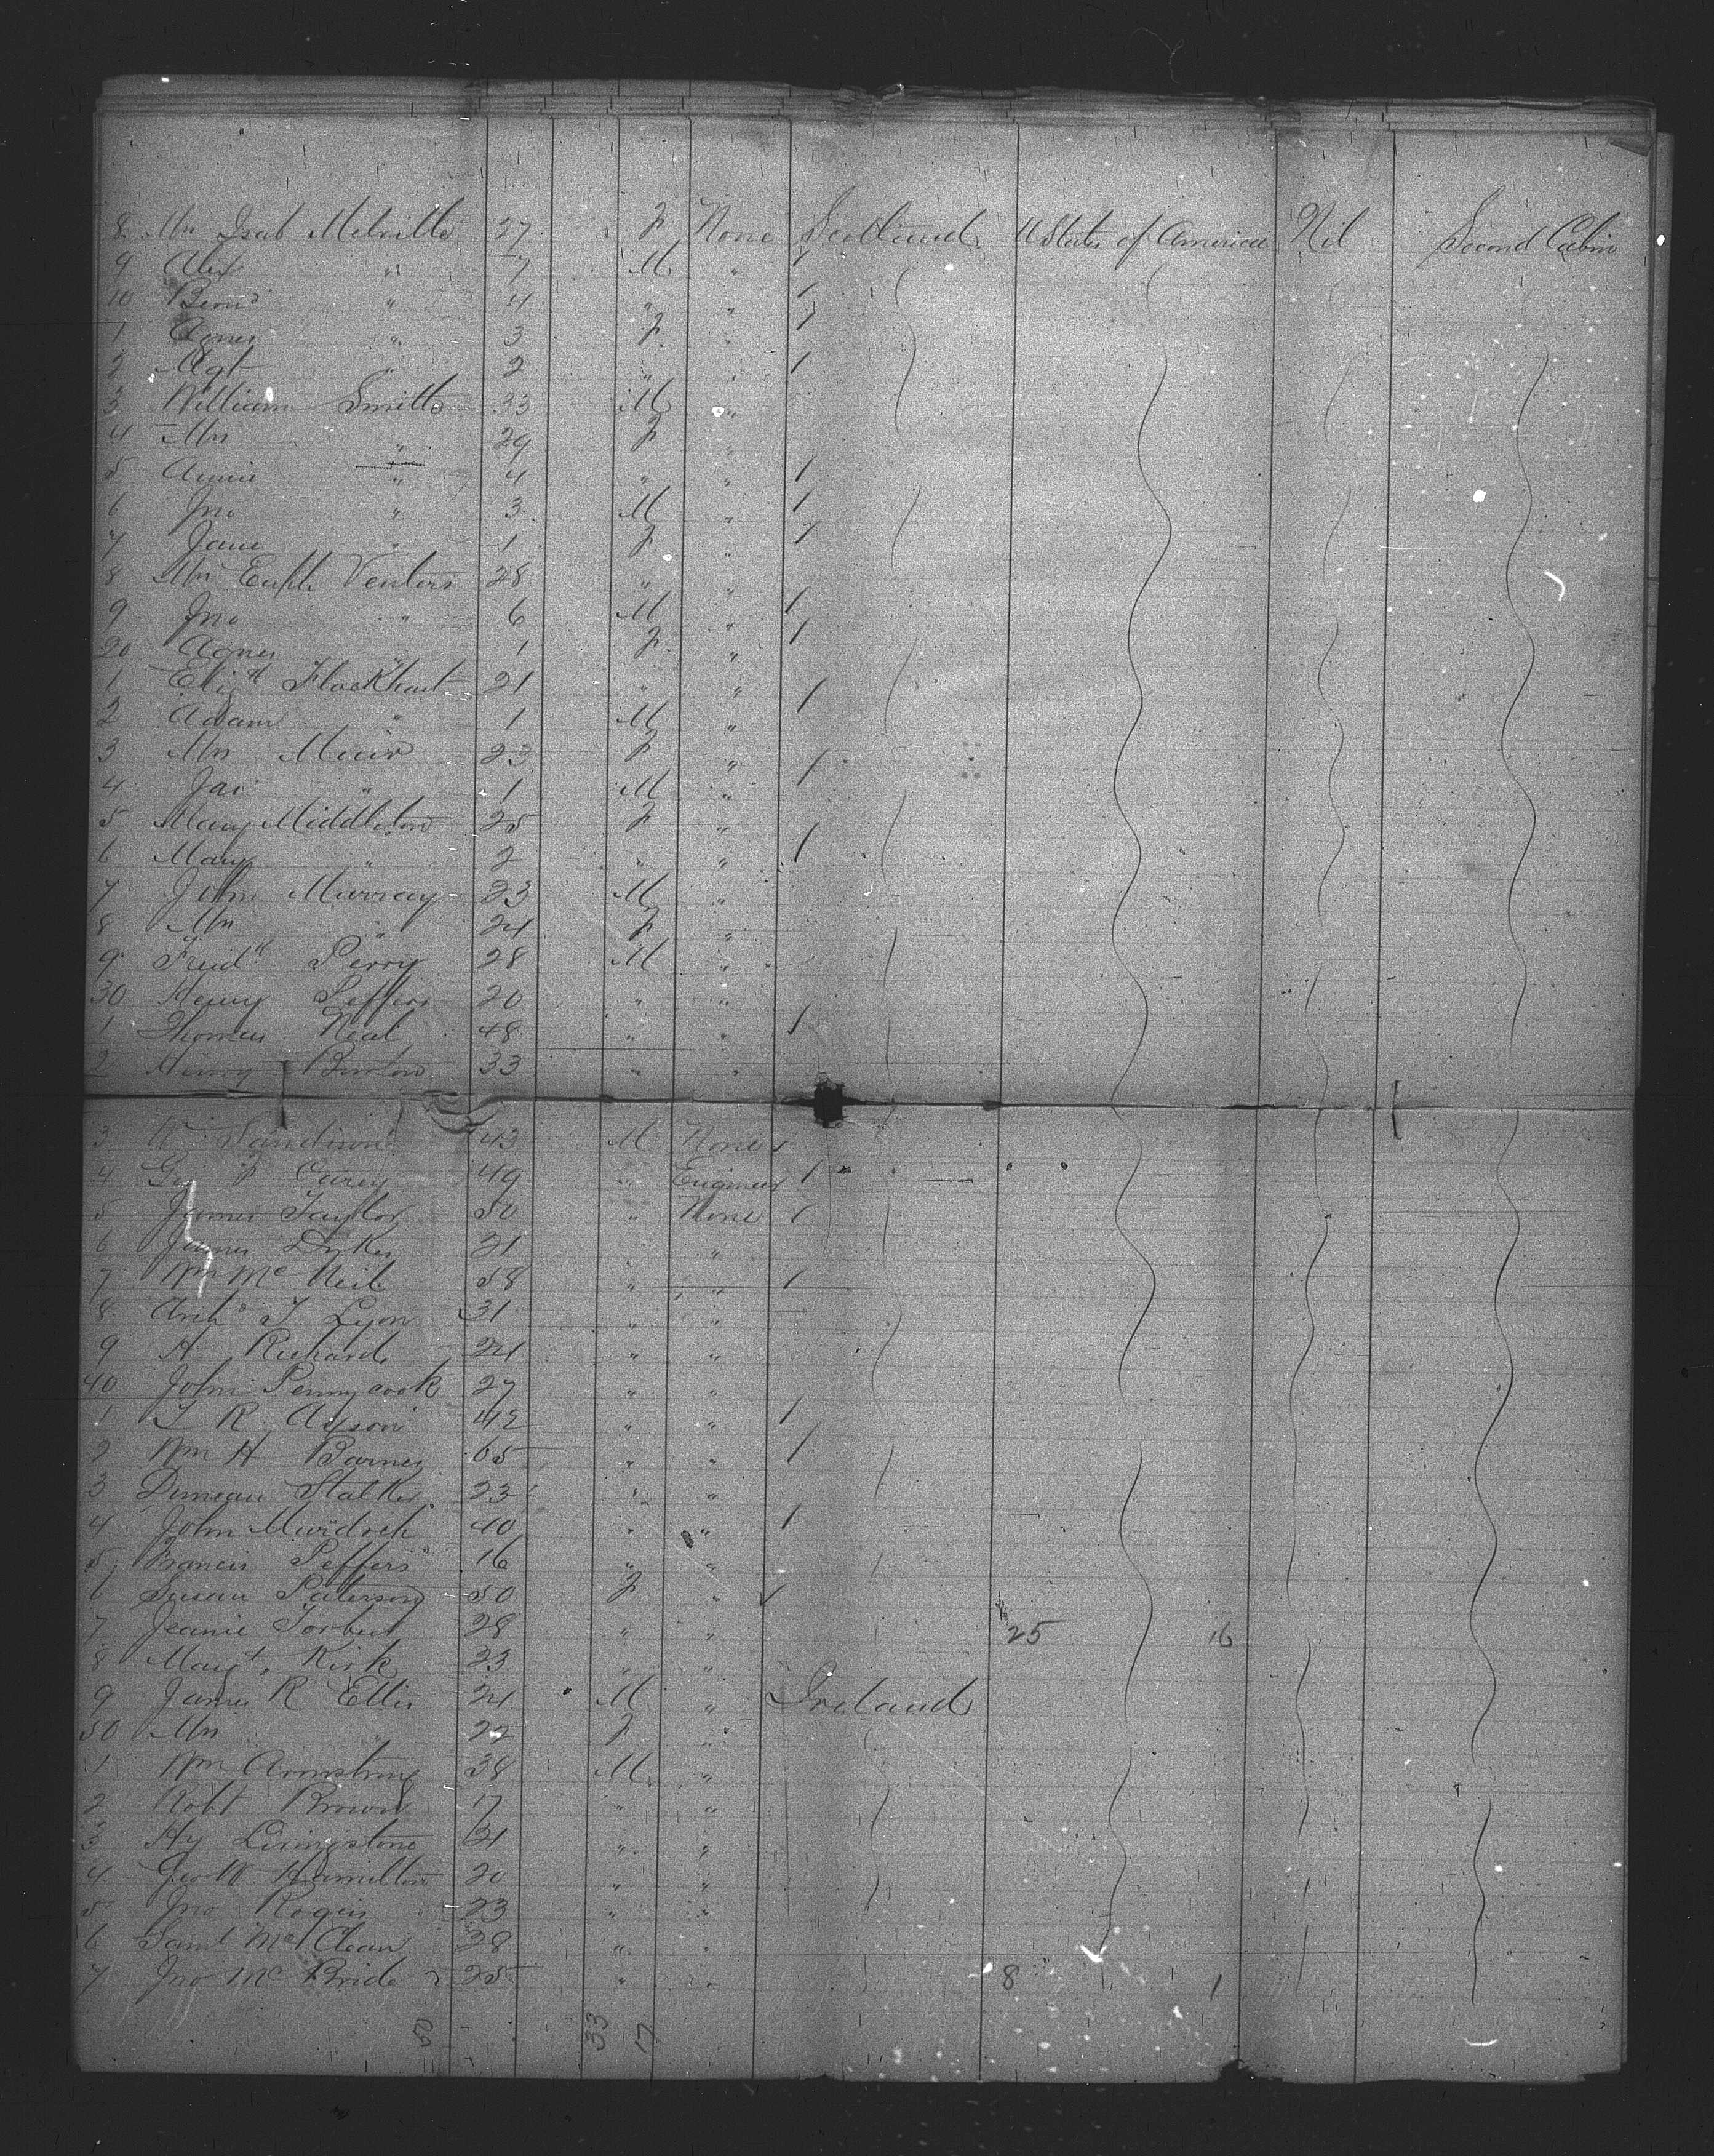 8 Mrs Isab Melville 27 F None Scotland U States of America Nil Second Cabin
9 Alex " 7 M "
10 " 4 " "
1 Agnes " 3 F "
2 Mgt " 2 " "
3 William Smith 33 M "
4 Mrs " 29 F "
5 Annie " 4 " "
6 Jno " 3 M "
7 Jane " 1 F "
8 Mrs Euph Venters 28 " "
9 Jno " 6 M "
20 Agnes " 1 F "
1 Elizth Flockhart 21 " "
2 Adam " 1 M "
3 Mrs Muir 23 F "
4 Jas " 1 M "
5 Mary Middleton 25 F "
6 Mary " 2 " "
7 John Murray 23 M "
8 Mrs " 24 F "
9 Fredk Perry 28 M "
30 Henry Peffers 20 " "
1 Thomas Neal 48 " "
2 Henry Burton 33 " "
3 W Sandison 43 M None
4 Geo F Carey 49 " Engineer
5 James Taylor 50 " None
6 James Dykes 21 " "
7 Wm McNeil 58 " "
8 Archd T Lyon 31 " "
9 H Richards 24 " "
40 John Pennycook 27 " "
1 T R 42 " "
2 Wm H Barnes 65 " "
3 Duncan Stalker 23 " "
4 John Murdoch 40 " "
5 Francis Peffers 16 " "
6 Susan Paterson 50 F "
7 Jeanie Torbet 28 " " 25 16
8 Margt Kirk 23 " "
9 James R Ellis 24 M " Ireland
50 Mrs " 22 F "
1 Wm Armstrong 38 M "
2 Robt Brown 17 " "
3 Hy Livingstone " "
4 Geo W Hamilton 20 " "
5 Jno Rogers 23 " "
6 Saml McClean 28 " "
7 Jno McBride 25 " " 8 1
50 33 17